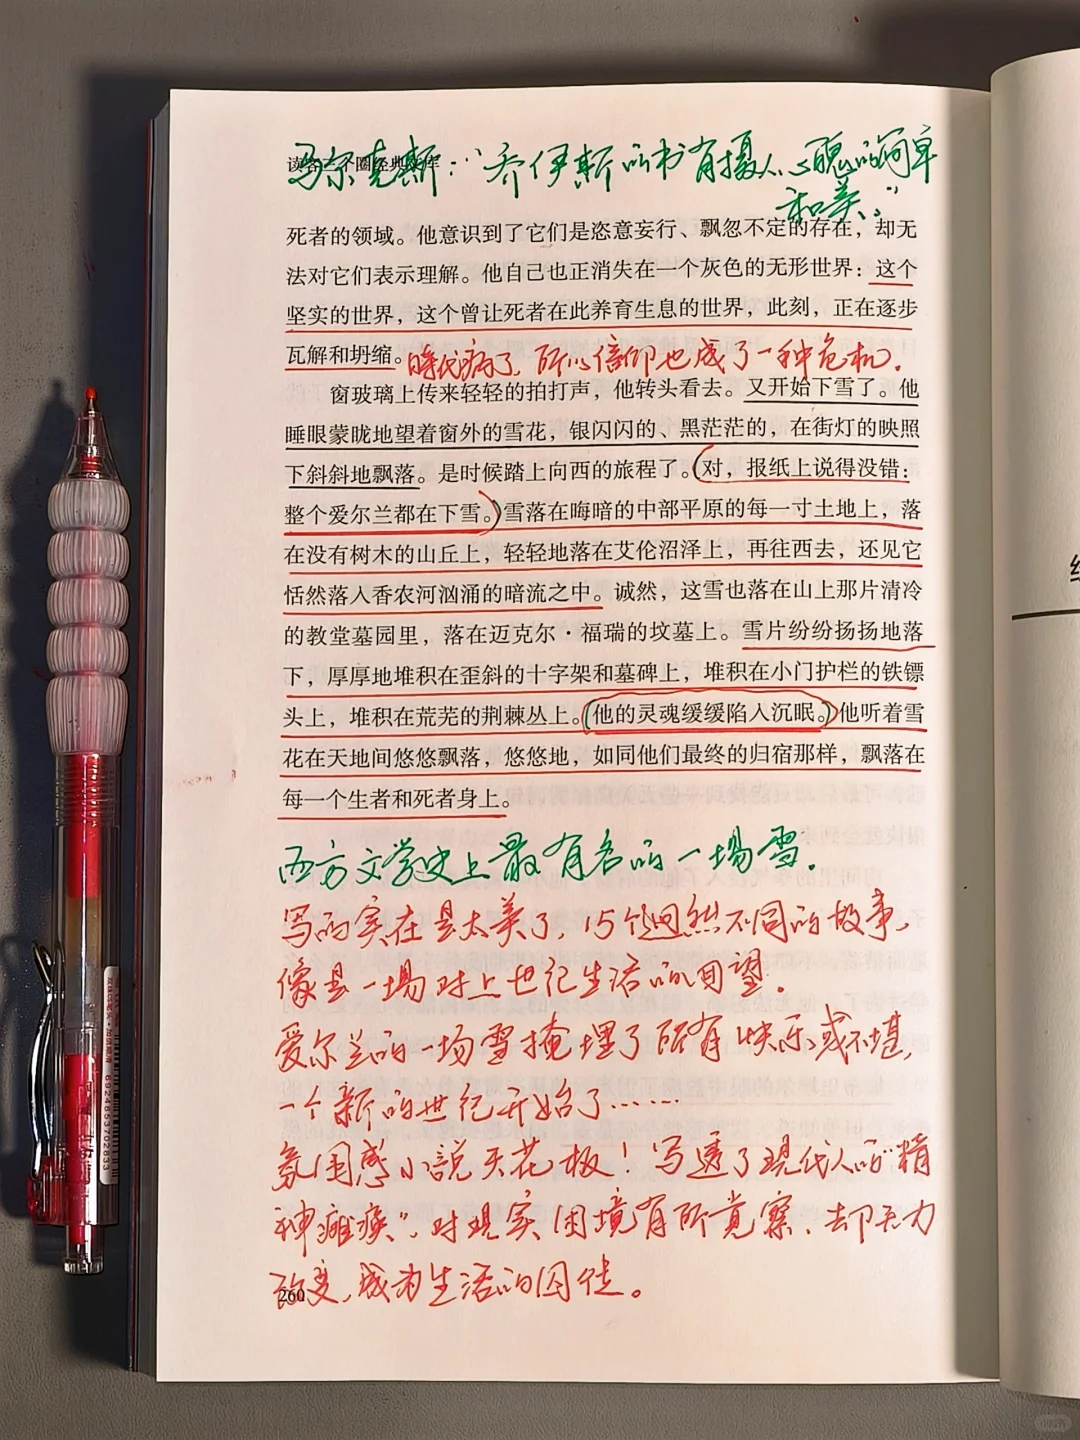 读客三个圈经典文库
马尔克斯：“乔伊斯的书有摄人心魄的简单
和美。”
死者的领域。他意识到了它们是恣意妄行、飘忽不定的存在，却无
法对它们表示理解。他自己也正消失在一个灰色的无形世界：这个
坚实的世界，这个曾让死者在此养育生息的世界，此刻，正在逐步
瓦解和坍缩。時代病了，所以信仰也成了一种危机.
窗玻璃上传来轻轻的拍打声，他转头看去。又开始下雪了。他
睡眼蒙眬地望着窗外的雪花，银闪闪的、黑茫茫的，在街灯的映照
下斜斜地飘落。是时候踏上向西的旅程了。对，报纸上说得没错：
整个爱尔兰都在下雪。雪落在晦暗的中部平原的每一寸土地上，落
在没有树木的山丘上，轻轻地落在艾伦沼泽上，再往西去，还见它
恬然落入香农河汹涌的暗流之中。诚然，这雪也落在山上那片清冷
的教堂墓园里，落在迈克尔·福瑞的坟墓上。雪片纷纷扬扬地落
下，厚厚地堆积在歪斜的十字架和墓碑上，堆积在小门护栏的铁镖
头上，堆积在荒芜的荆棘丛上。他的灵魂缓缓陷入沉眠。他听着雪
花在天地间悠悠飘落，悠悠地，如同他们最终的归宿那样，飘落在
每一个生者和死者身上。
西方文学史上最有名的一場雪.
写的实在是太美了，15个迥然不同的故事，
像是一場对上世纪生活的回望.
爱尔兰的一场雪掩埋了所有快乐或不堪，
一个新的世纪开始了……
氛围感小說天花板！写透了現代人的“精
神瘫痪”，对现实困境有所觉察、却无力
改变，成为生活的囚徒。
260
6924853702833